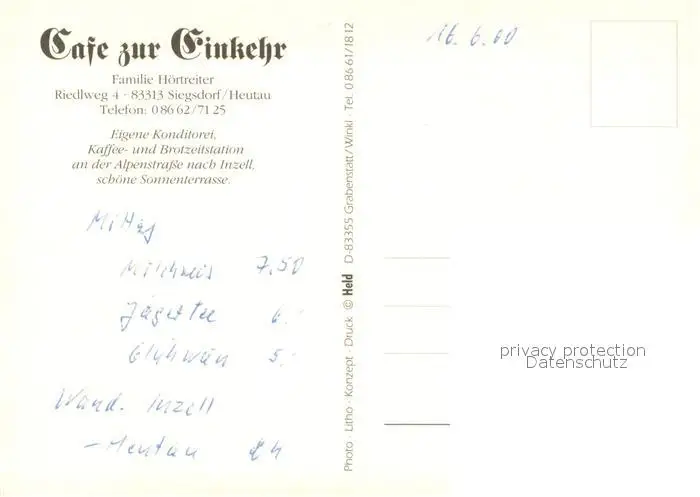 Cafe zur Einkehr
Familie Hörtreiter
Riedlweg 4 · 83313 Siegsdorf/Heutau
Telefon: 0 86 62/71 25
Eigene Konditorei,
Kaffee- und Brotzeitstation
an der Alpenstraße nach Inzell,
schöne Sonnenterrasse.
Mittag
Milchreis 7,50
Jägertee 6.-
Glühwein 5.-
Wand. Inzell
– Heutau 2h
Photo · Litho · Konzept · Druck © Held D-83355 Grabenstätt/Winkl · Tel. 0 86 61/18 12
16.6.00
privacy protection
Datenschutz